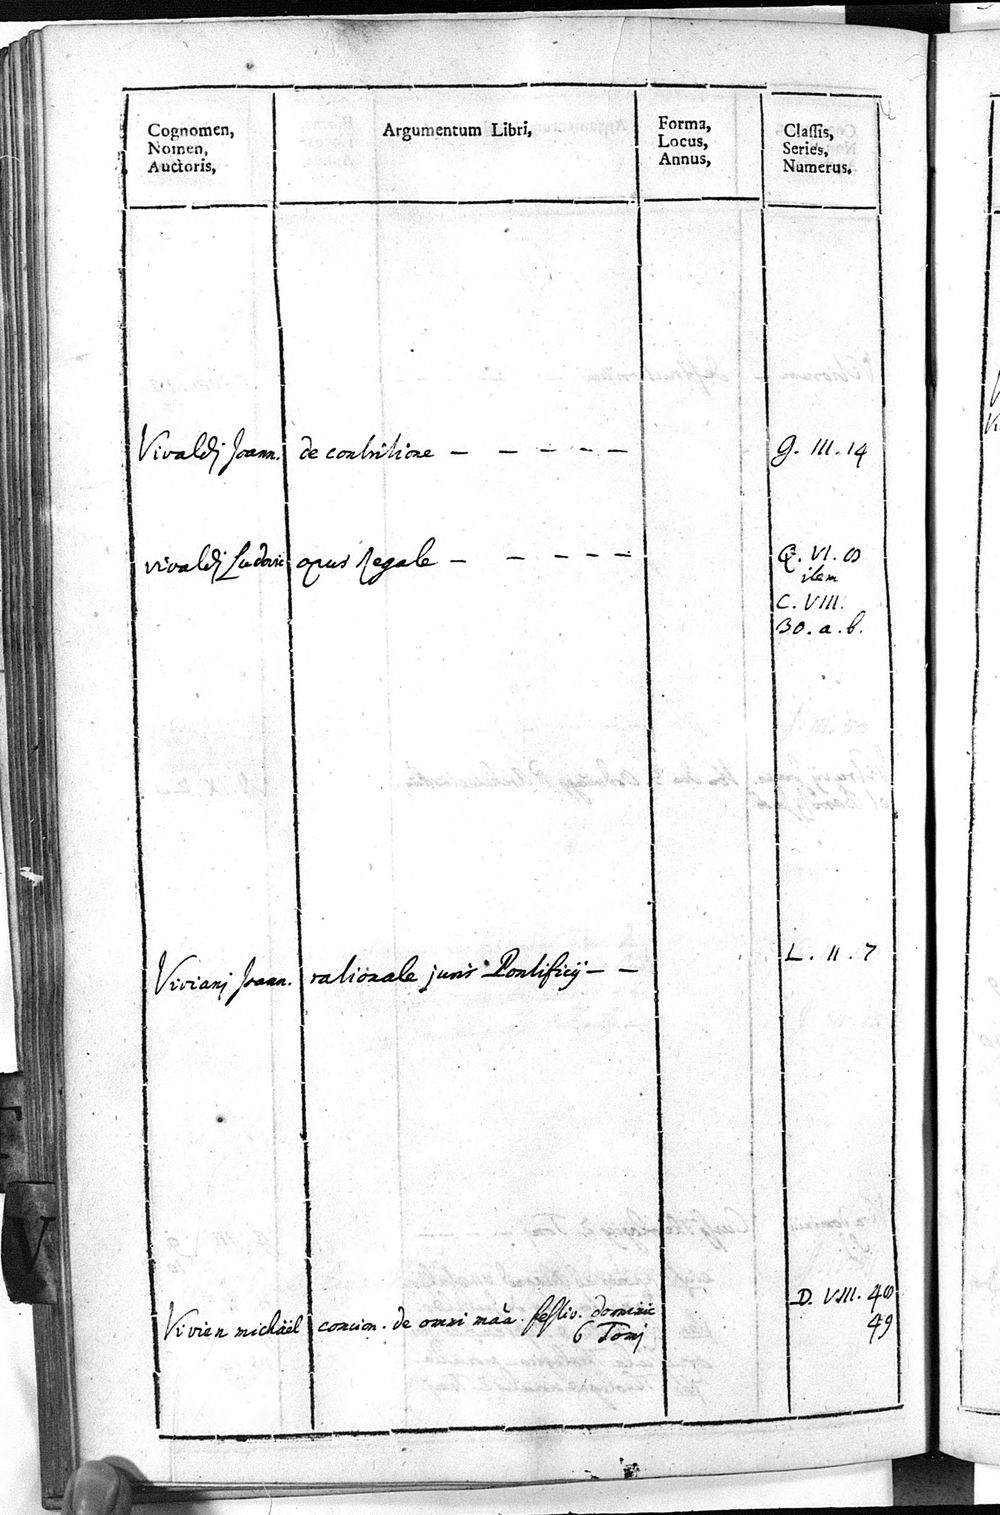 Cognomen,
Nomen,
Auctoris,
Argumentum Libri,
Forma,
Locus,
Annus,
Classis,
Series,
Numerus.
Vivaldj Joann. de contritione – – – – – g. III. 14
vivaldj Ludovic opus Regale – – – – –
VI.
item
C. VIII.
30. a. b.
Vivianj Joann. rationale juris Pontificij – – L. II. 7
Vivien michaël concion. de omni maâ. festiv. dominic D. VIII. 48
6 Tomj 49
V